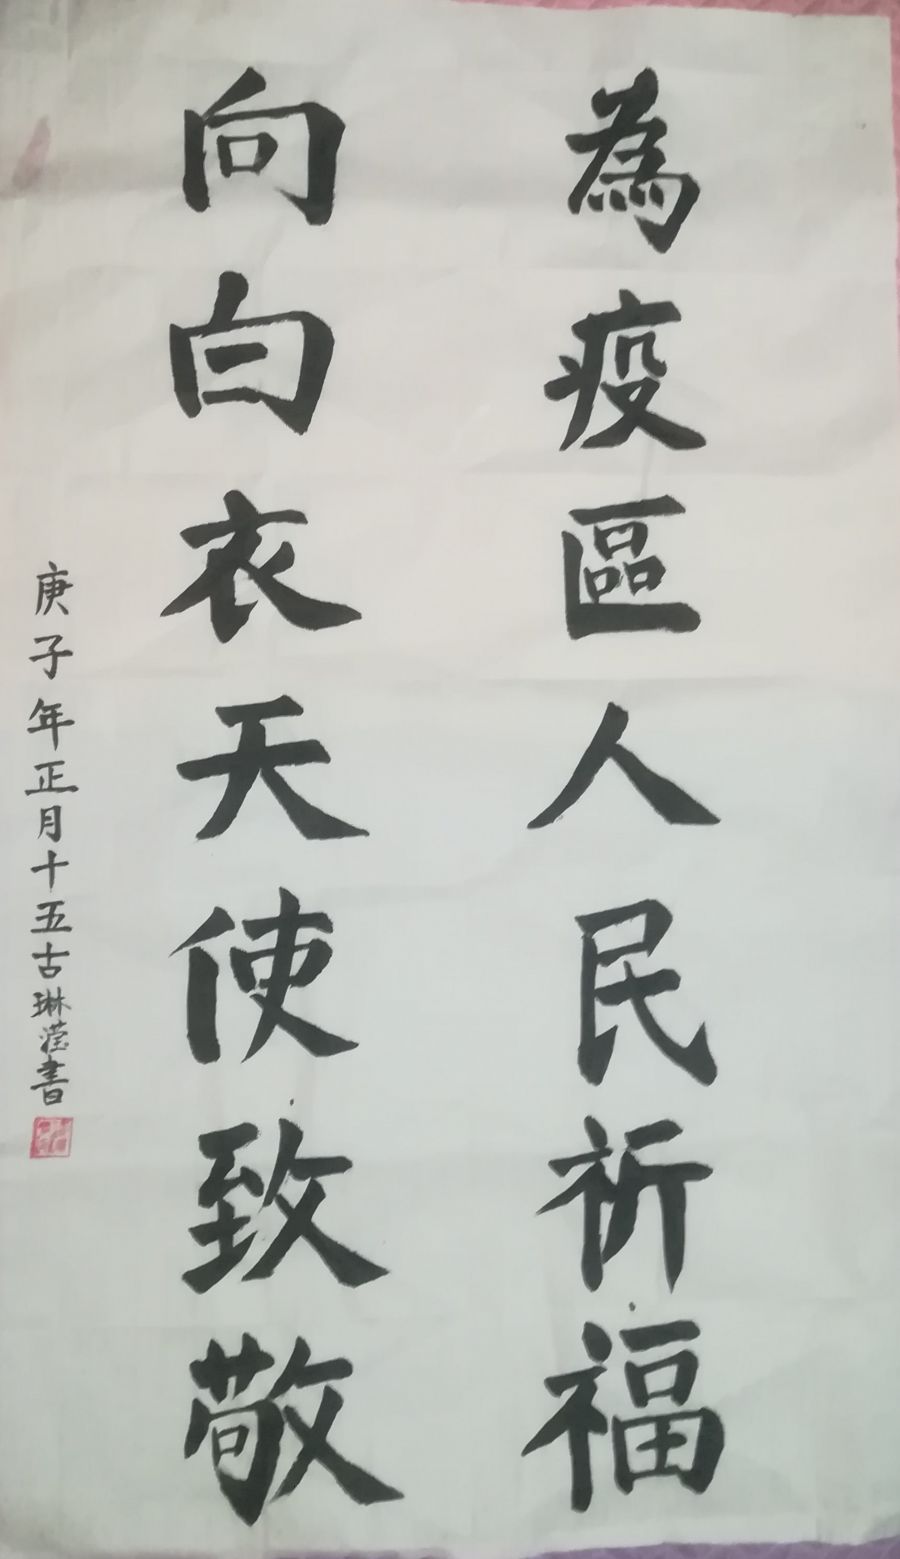 為疫區人民祈福
向白衣天使致敬
庚子年正月十五古琳滢書